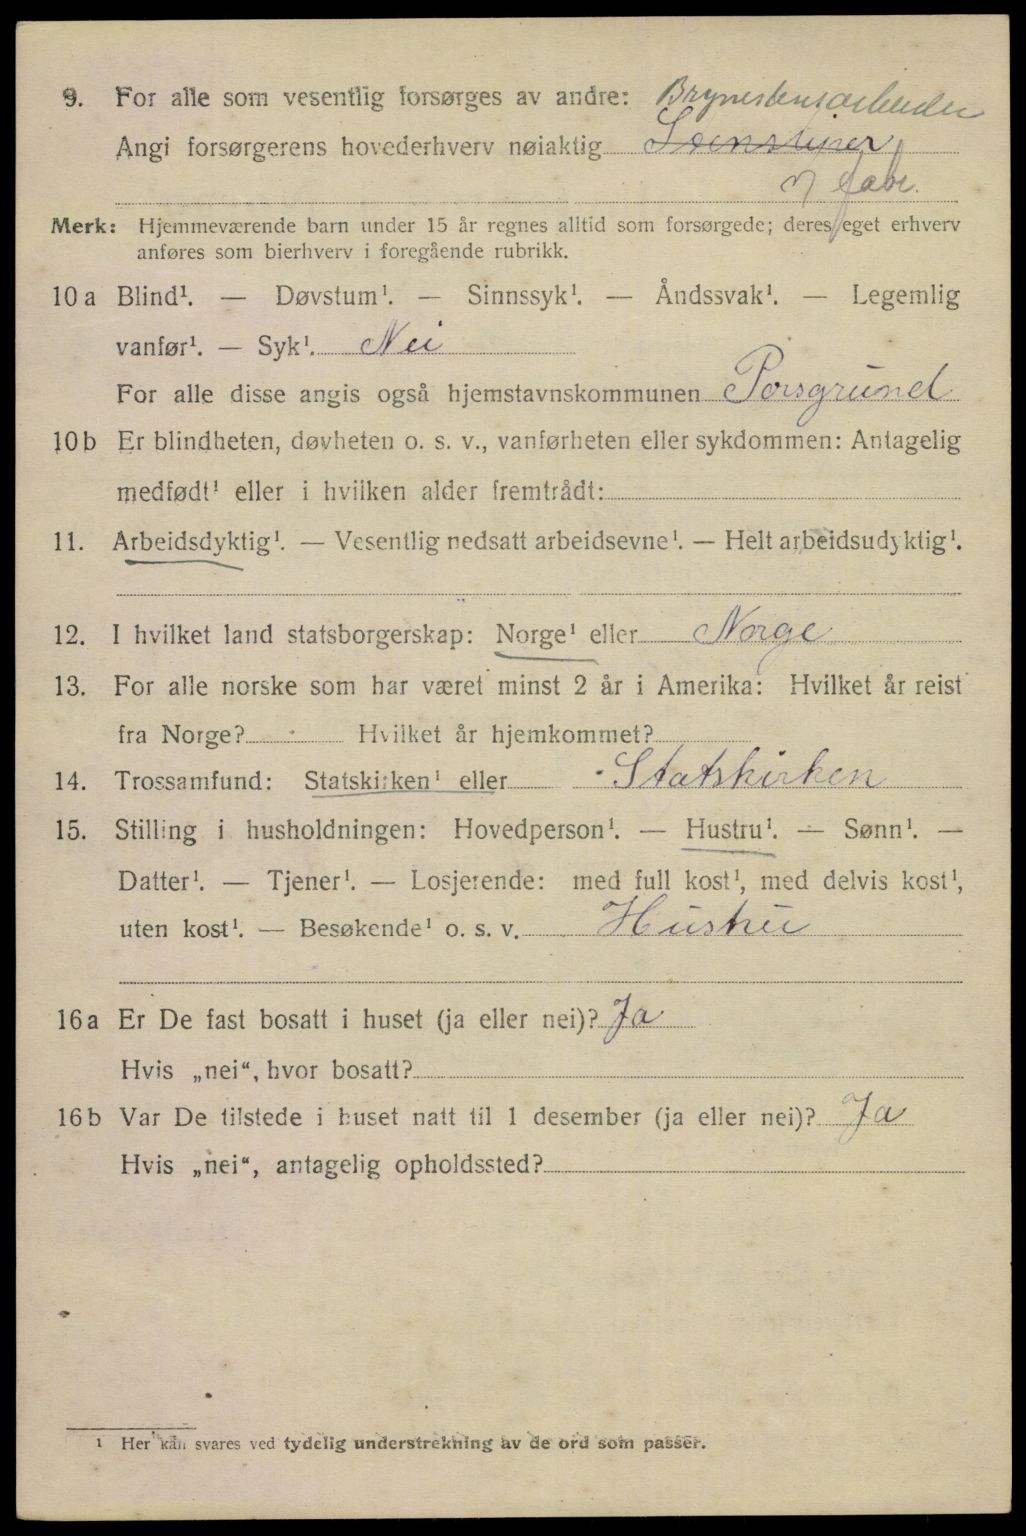 9. For alle som vesentlig forsørges av andre: Brynestensarbeider
Angi forsørgerens hovederhverv nøiaktig
fabr.
Merk: Hjemmeværende barn under 15 år regnes alltid som forsørgede; deres eget erhverv
anføres som bierhverv i foregående rubrikk.
10 a Blind¹. — Døvstum¹. — Sinnssyk¹. — Åndssvak¹. — Legemlig
vanfør¹. — Syk¹. Nei
For alle disse angis også hjemstavnskommunen Porsgrund
10 b Er blindheten, døvheten o. s. v., vanførheten eller sykdommen: Antagelig
medfødt¹ eller i hvilken alder fremtrådt:
11. Arbeidsdyktig¹. — Vesentlig nedsatt arbeidsevne¹. — Helt arbeidsudyktig¹.
12. I hvilket land statsborgerskap: Norge¹ eller Norge
13. For alle norske som har været minst 2 år i Amerika: Hvilket år reist
fra Norge? Hvilket år hjemkommet?
14. Trossamfund: Statskirken¹ eller Statskirken
15. Stilling i husholdningen: Hovedperson¹. — Hustru¹. — Sønn¹. —
Datter¹. — Tjener¹. — Losjerende: med full kost¹, med delvis kost¹,
uten kost¹. — Besøkende¹ o. s. v. Hustru
16 a Er De fast bosatt i huset (ja eller nei)? Ja
Hvis „nei“, hvor bosatt?
16 b Var De tilstede i huset natt til 1 desember (ja eller nei)? Ja
Hvis „nei“, antagelig opholdssted?
¹ Her kan svares ved tydelig understrekning av de ord som passer.